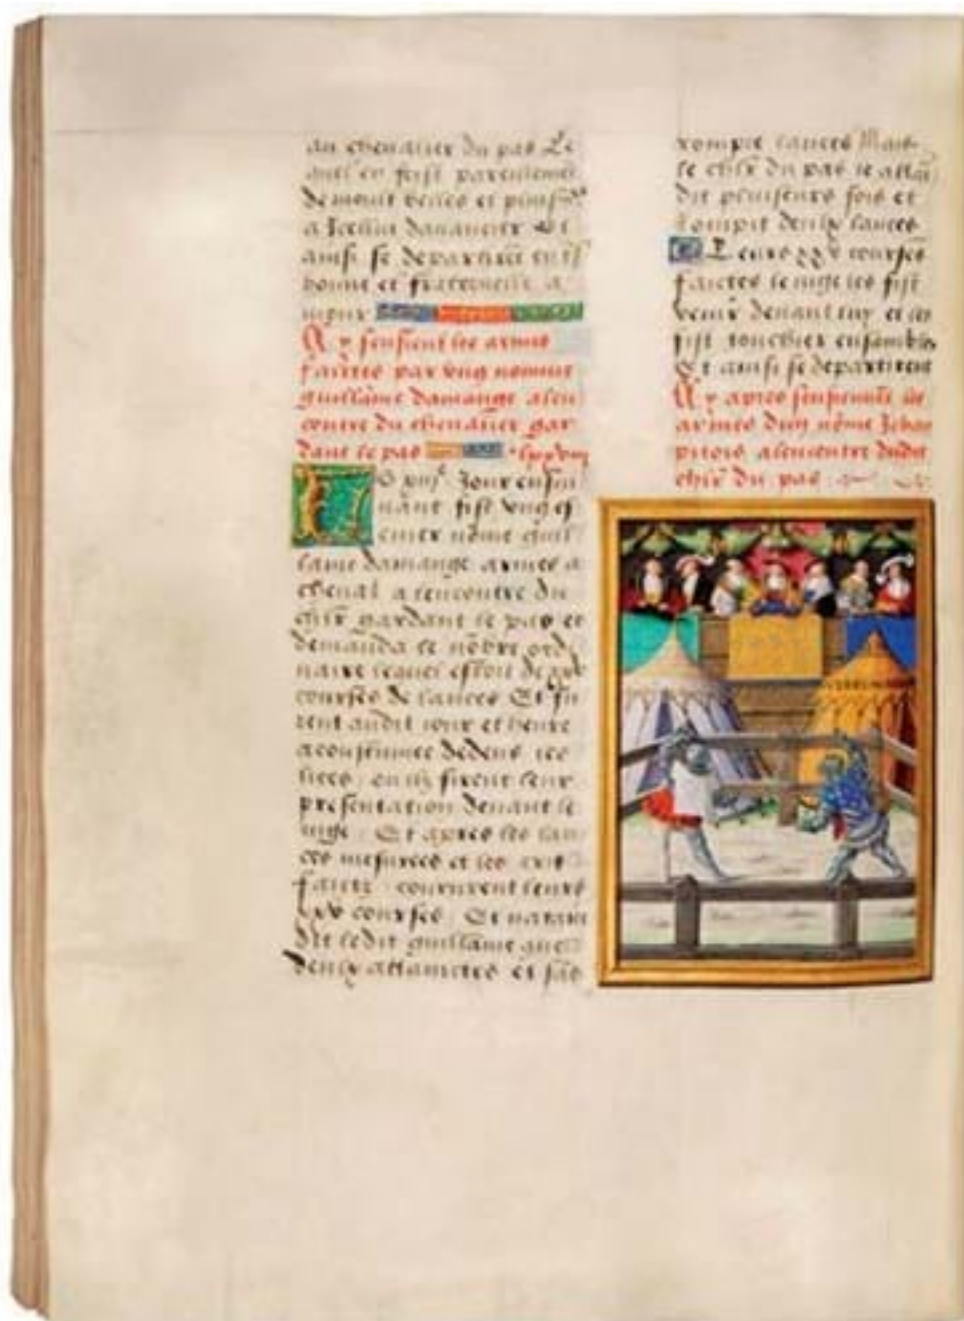 au chevalier du pas Le
quel en fist pareillement
de moult belles et plus
a Jcellui Et
ainsi se departirent en
bonne et fraternelle a
mour
Cy sensieut les armes
faictes par vng nomme
guillame damange alen
contre du chevalier gar
dant le pas
Jour ensui
uant fist vng es
cuier nome guil
lame damange armes a
cheual a lencontre du
chlr gardant le pas et
demanda le nobre ordi
naire lequel estoit de xxv
courses de lances Et fu
rent audit iour et heure
acoustumee dedens les
lices ou ilz firent leur
presentation deuant le
iuge Et apres les lan
ces mesurees et les cris
faictz coururent leurs
xxv courses Et
ledit guillame que
deulx attaintes et sas
rompre lances Mais
le chlr du pas le attai
dit pluiseurs fois et
rompit deulx lances
Leurs xxv courses
faictes le iuge les fist
venir deuant luy et les
fist touchier ensamble
Et ainsi se departirent
Cy apres les
armes dung nome Jehan
pitois alencontre dudit
chlr du pas